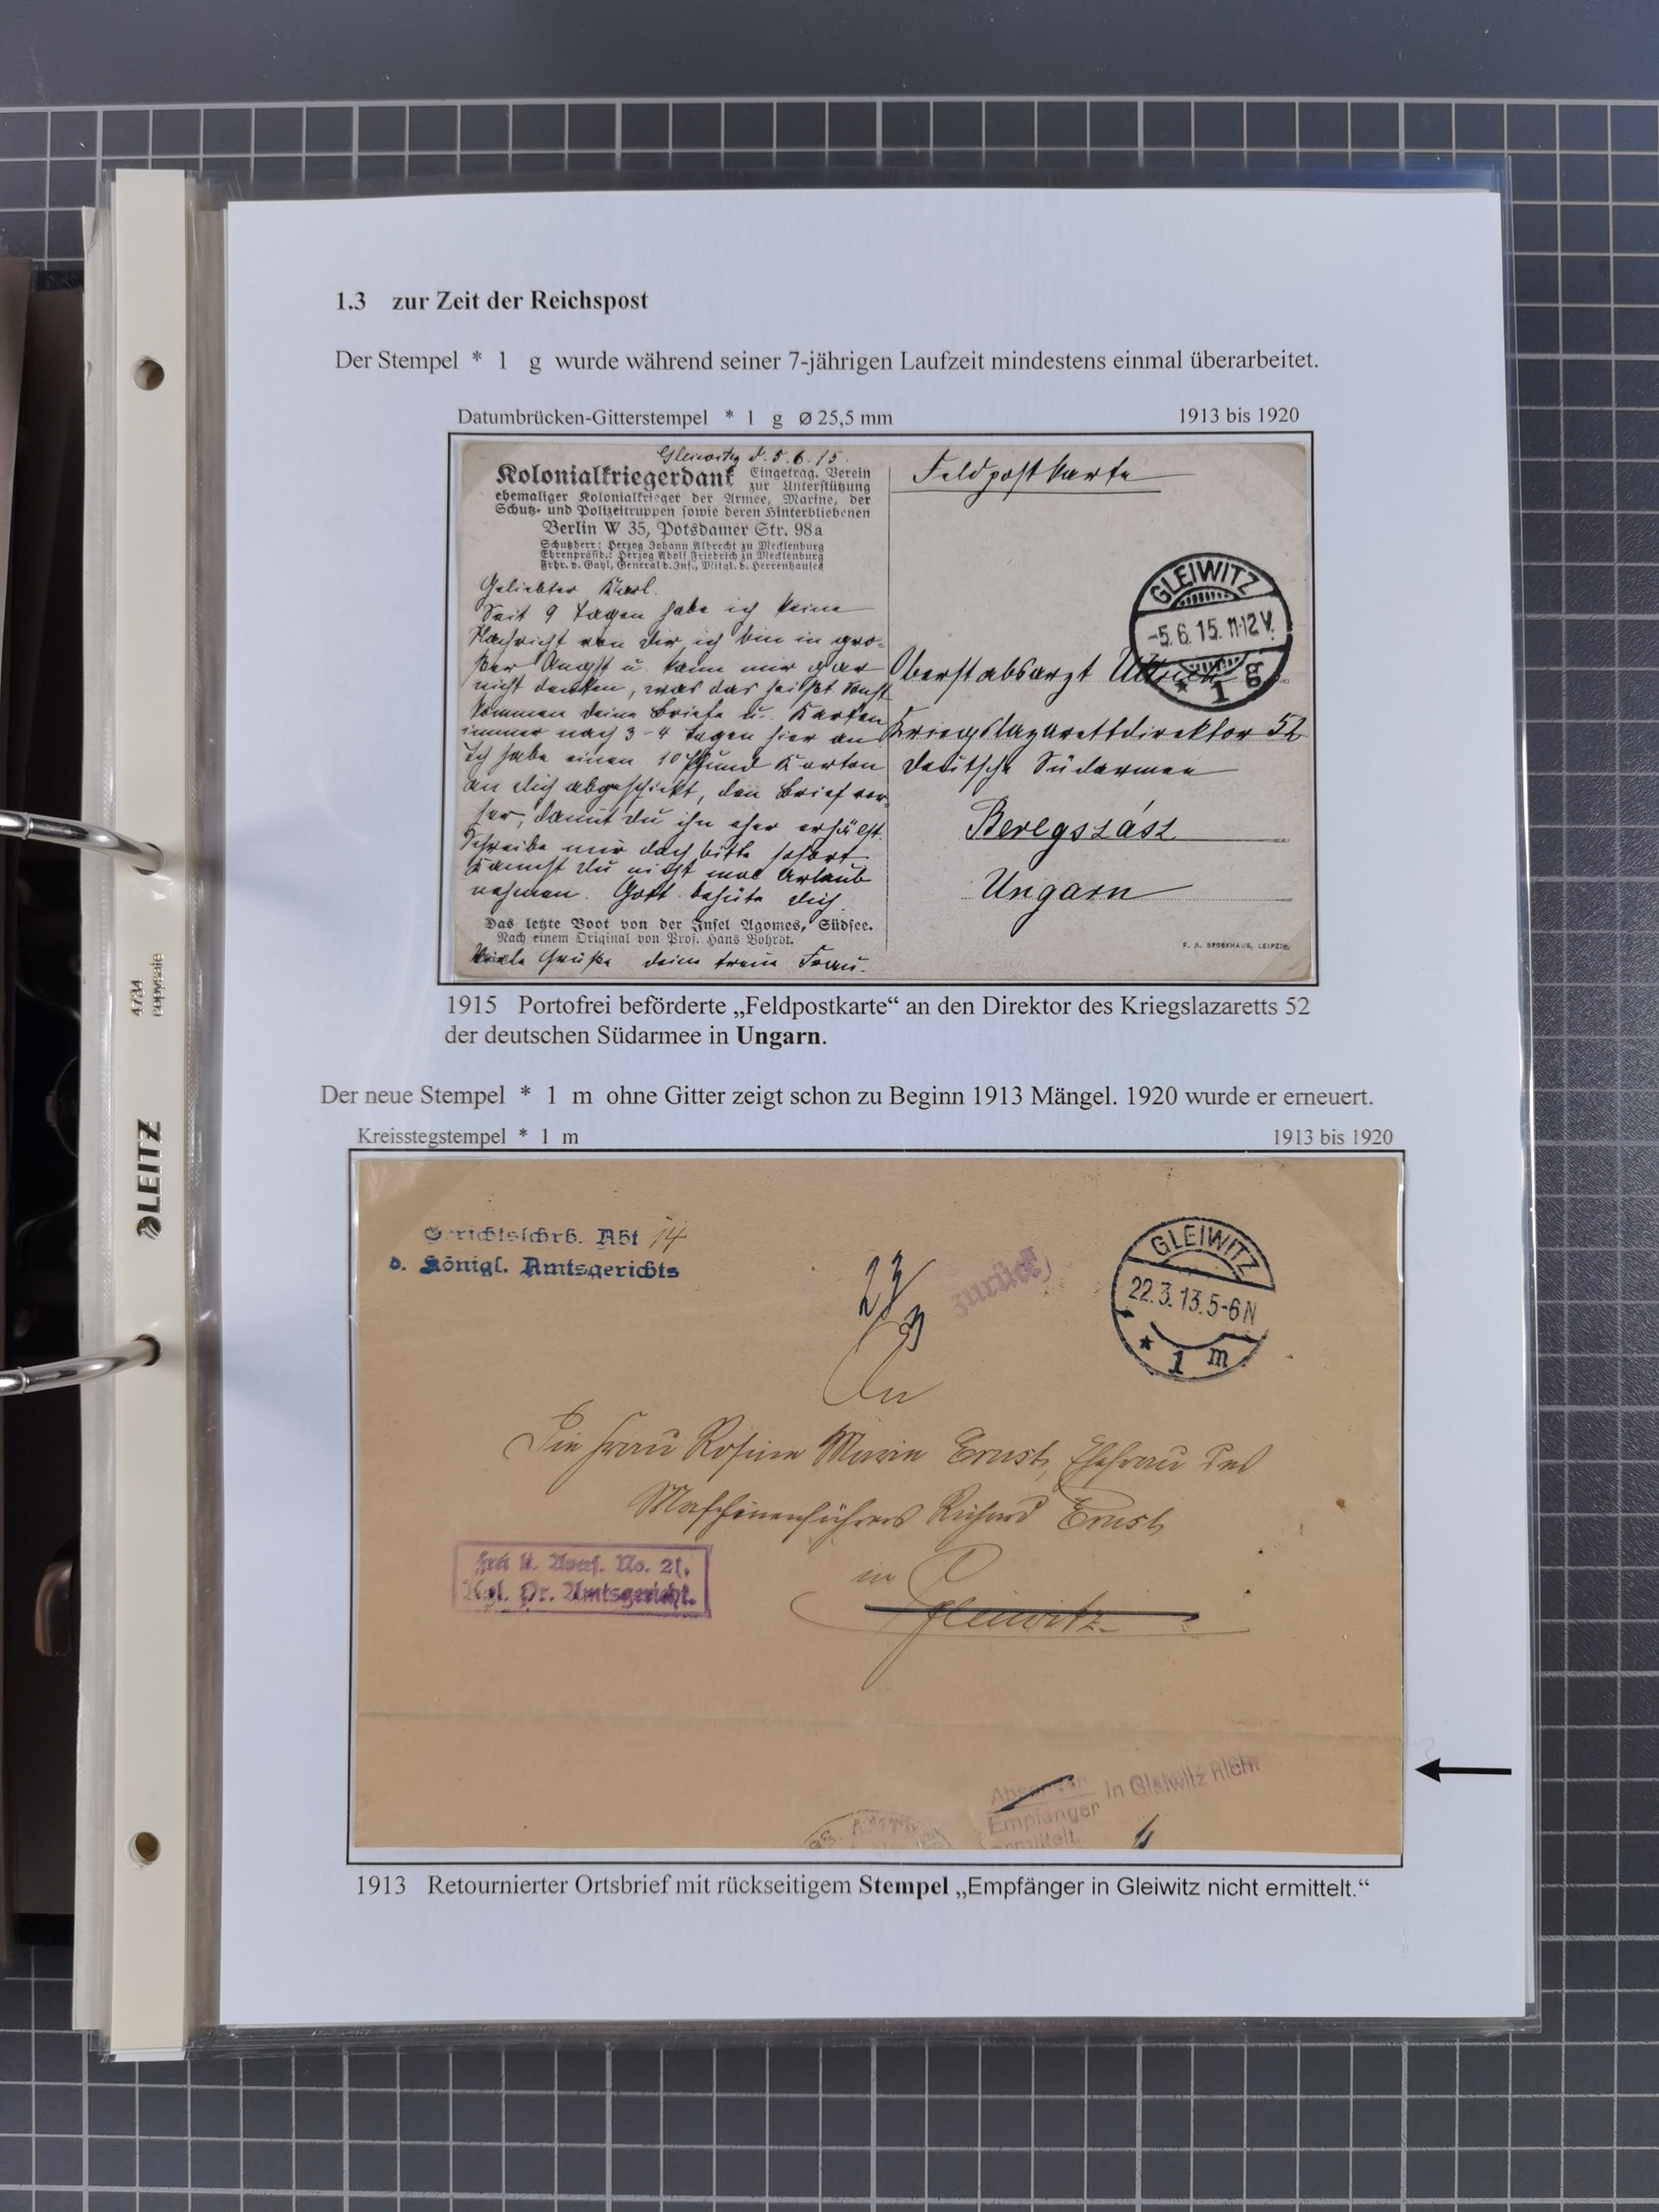 1.3 zur Zeit der Reichspost
Der Stempel * 1 g wurde während seiner 7-jährigen Laufzeit mindestens einmal überarbeitet.
Datumbrücken-Gitterstempel * 1 g Ø 25,5 mm 1913 bis 1920
Gleiwitz d. 5.6.15.
Kolonialkriegerdank Eingetrag. Verein
zur Unterstützung
ehemaliger Kolonialkrieger der Armee, Marine, der
Schutz- und Polizeitruppen sowie deren Hinterbliebenen
Berlin W 35, Potsdamer Str. 98a
Schutzherr: Herzog Johann Albrecht zu Mecklenburg
Ehrenpräsid.: Herzog Adolf Friedrich zu Mecklenburg
Frhr. v. Gayl, General d. Inf., Mitgl. d. Herrenhauses
Geliebter Karl.
Seit 9 Tagen habe ich keine
Nachricht von dir, ich bin in gro-
ßer Angst u. kann mir gar
nicht denken, was das heißt. Sonst
kommen deine Briefe u. Karten
immer nach 3-4 Tagen hier an
Ich habe einen 10 Pfund Karton
an dich abgeschickt, den Brief vor-
her, damit du ihn eher erhälst.
Schreibe mir doch bitte sofort
Kannst du nicht mal Urlaub
nehmen. Gott behüte dich.
Das letzte Boot von der Insel Agomes, Südsee.
Nach einem Original von Prof. Hans Bohrdt.
Viele Grüße deine treue Frau.
Feldpostkarte
GLEIWITZ
-5.6.15.11-12V.
* 1 g
Oberstabsarzt Ullrich
Kriegslazarettdirektor 52
deutsche Südarmee
Beregszász
Ungarn
F. A. BROCKHAUS, LEIPZIG
1915 Portofrei beförderte „Feldpostkarte“ an den Direktor des Kriegslazaretts 52
der deutschen Südarmee in Ungarn.
Der neue Stempel * 1 m ohne Gitter zeigt schon zu Beginn 1913 Mängel. 1920 wurde er erneuert.
Kreisstegstempel * 1 m 1913 bis 1920
Gerichtsschrb. Abt 14
d. Königl. Amtsgerichts
zurück
GLEIWITZ
22.3.13.5-6N
* 1 m
An
Die Frau Rosina Maria Ernst, Ehefrau des
Maschinenführers Richard Ernst
in
Gleiwitz
frei lt. Avers. No. 21.
Kgl. Pr. Amtsgericht.
in Gleiwitz nicht
Empfänger
ermittelt.
1913 Retournierter Ortsbrief mit rückseitigem Stempel „Empfänger in Gleiwitz nicht ermittelt.“
LEITZ
4734
copysafe